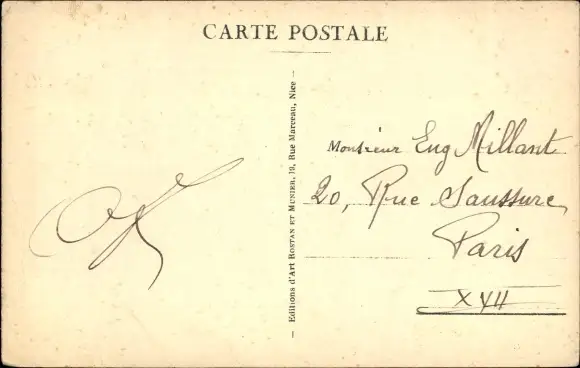 CARTE POSTALE
— Editions d'Art ROSTAN ET MUNIER, 19, Rue Marceau, Nice —
Monsieur Eug Millant
20, Rue Saussure,
Paris
XVII